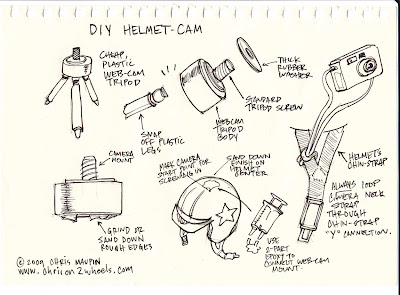 DIY HELMET-CAM
CHEAP,
PLASTIC
WEB-CAM
TRIPOD
SNAP
OFF PLASTIC
LEGS
WEBCAM
TRIPOD
BODY
THICK
RUBBER
WASHER
STANDARD
TRIPOD SCREW
CAMERA
MOUNT
GRIND OR
SAND DOWN
ROUGH EDGES
MARK CAMERA
START POINT FOR
SCREWING IN
SAND DOWN
FINISH ON
HELMET
CENTER
USE
2-PART
EPOXY TO
CONNECT WEB-CAM
MOUNT.
HELMET'S
CHIN-STRAP
ALWAYS LOOP
CAMERA NECK
STRAP
THROUGH
CHIN-STRAP
"Y" CONNECTION.
© 2009 CHRIS MAUPIN
www.chrison2wheels.com